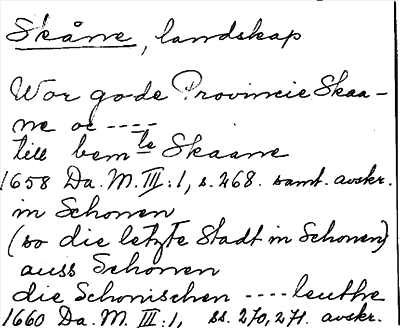 Skåne, landskap
Wor gode Provincie Skaa-
ne oc ----
till bem:te Skaane
1658 Da. M. III:1, s. 268. samt. avskr.
in Schonen
(so die letzte Stadt in Schonen)
auss Schonen
die Schonischen ---- leuthe
1660 Da. M. III:1, ss. 270, 271. avskr.